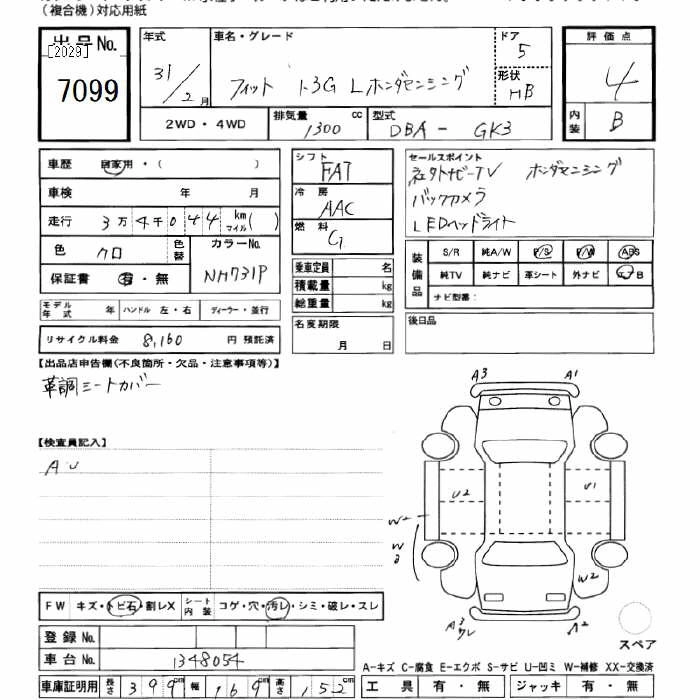 (複合機)対応用紙
出品No.
[2029]
7099
年式
31/2月
車名・グレード
フィット 1.3G L ホンダセンシング
ドア
5
形状
HB
評価点
4
内装
B
2WD・4WD
排気量
1300 cc
型式
DBA - GK3
車歴 自家用・( )
車検 年 月
走行 3万4千044 km マイル( )
色 クロ
色替
カラーNo.
NH731P
保証書 有・無
シフト
FAT
冷房
AAC
燃料
G
乗車定員 名
積載量 kg
総重量 kg
名変期限
月 日
セールスポイント
社外ナビーTV ホンダセンシング
バックカメラ
LEDヘッドライト
装備品
S/R 純A/W P/S P/W ABS
純TV 純ナビ 革シート 外ナビ エアB
ナビ型番:
後日品
モデル年式 年 ハンドル 左・右 ディーラー・並行
リサイクル料金 8,160 円 預託済
【出品店申告欄(不良箇所・欠品・注意事項等)】
革調シートカバー
【検査員記入】
AU
A3 A1
U2 U1
W2
W2
W2
A3 A2
FW キズ・トビ石・割レX シート内装 コゲ・穴・汚レ・シミ・破レ・スレ
登録No.
車台No. 1348054
車庫証明用 長さ 399cm 幅 169cm 高さ 152cm
スペア
A-キズ C-腐食 E-エクボ S-サビ U-凹ミ W-補修 XX-交換済
工具 有・無 ジャッキ 有・無